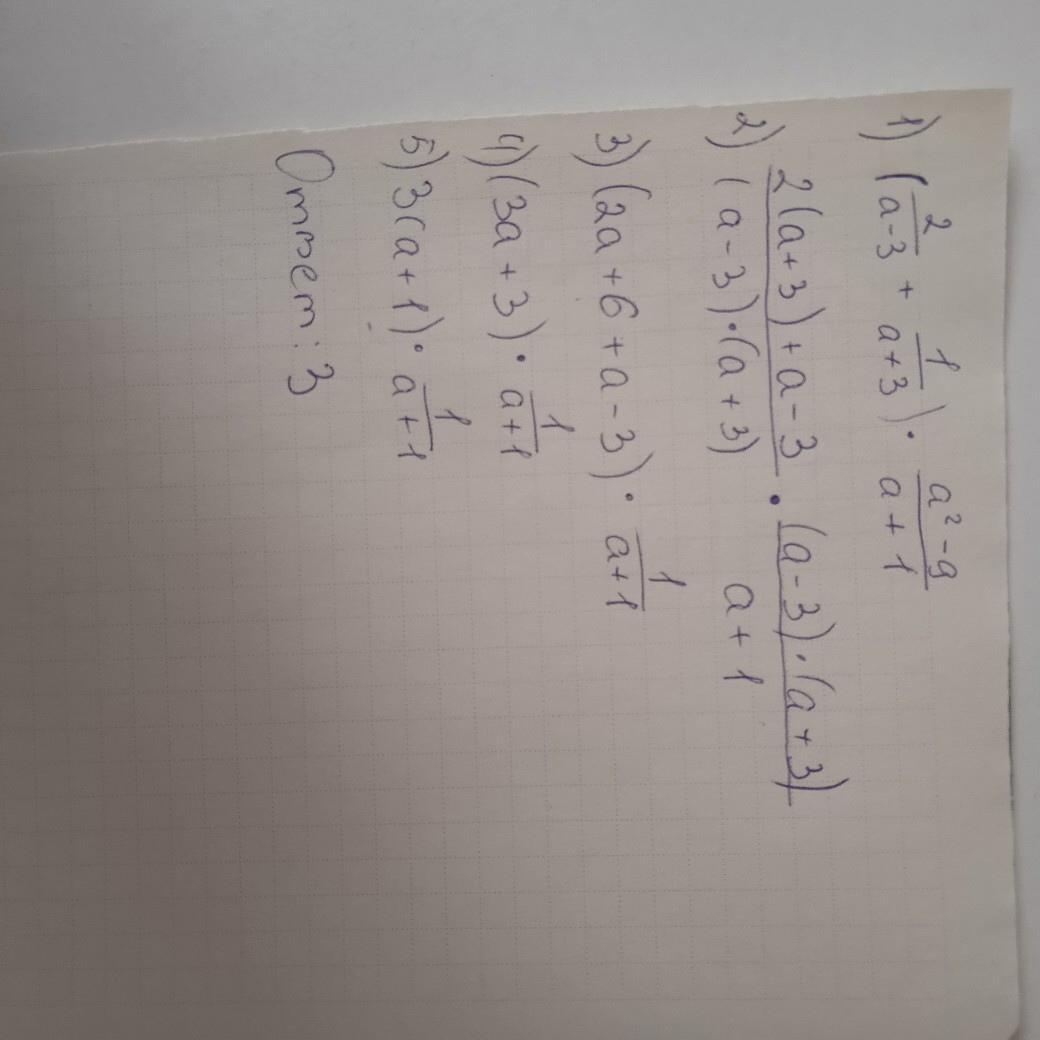 1) (2/(a-3) + 1/(a+3)) · (a²-9)/(a+1)
2) (2(a+3)+a-3)/((a-3)·(a+3)) · ((a-3)·(a+3))/(a+1)
3) (2a+6+a-3) · 1/(a+1)
4) (3a+3) · 1/(a+1)
5) 3(a+1) · 1/(a+1)
Ответ: 3